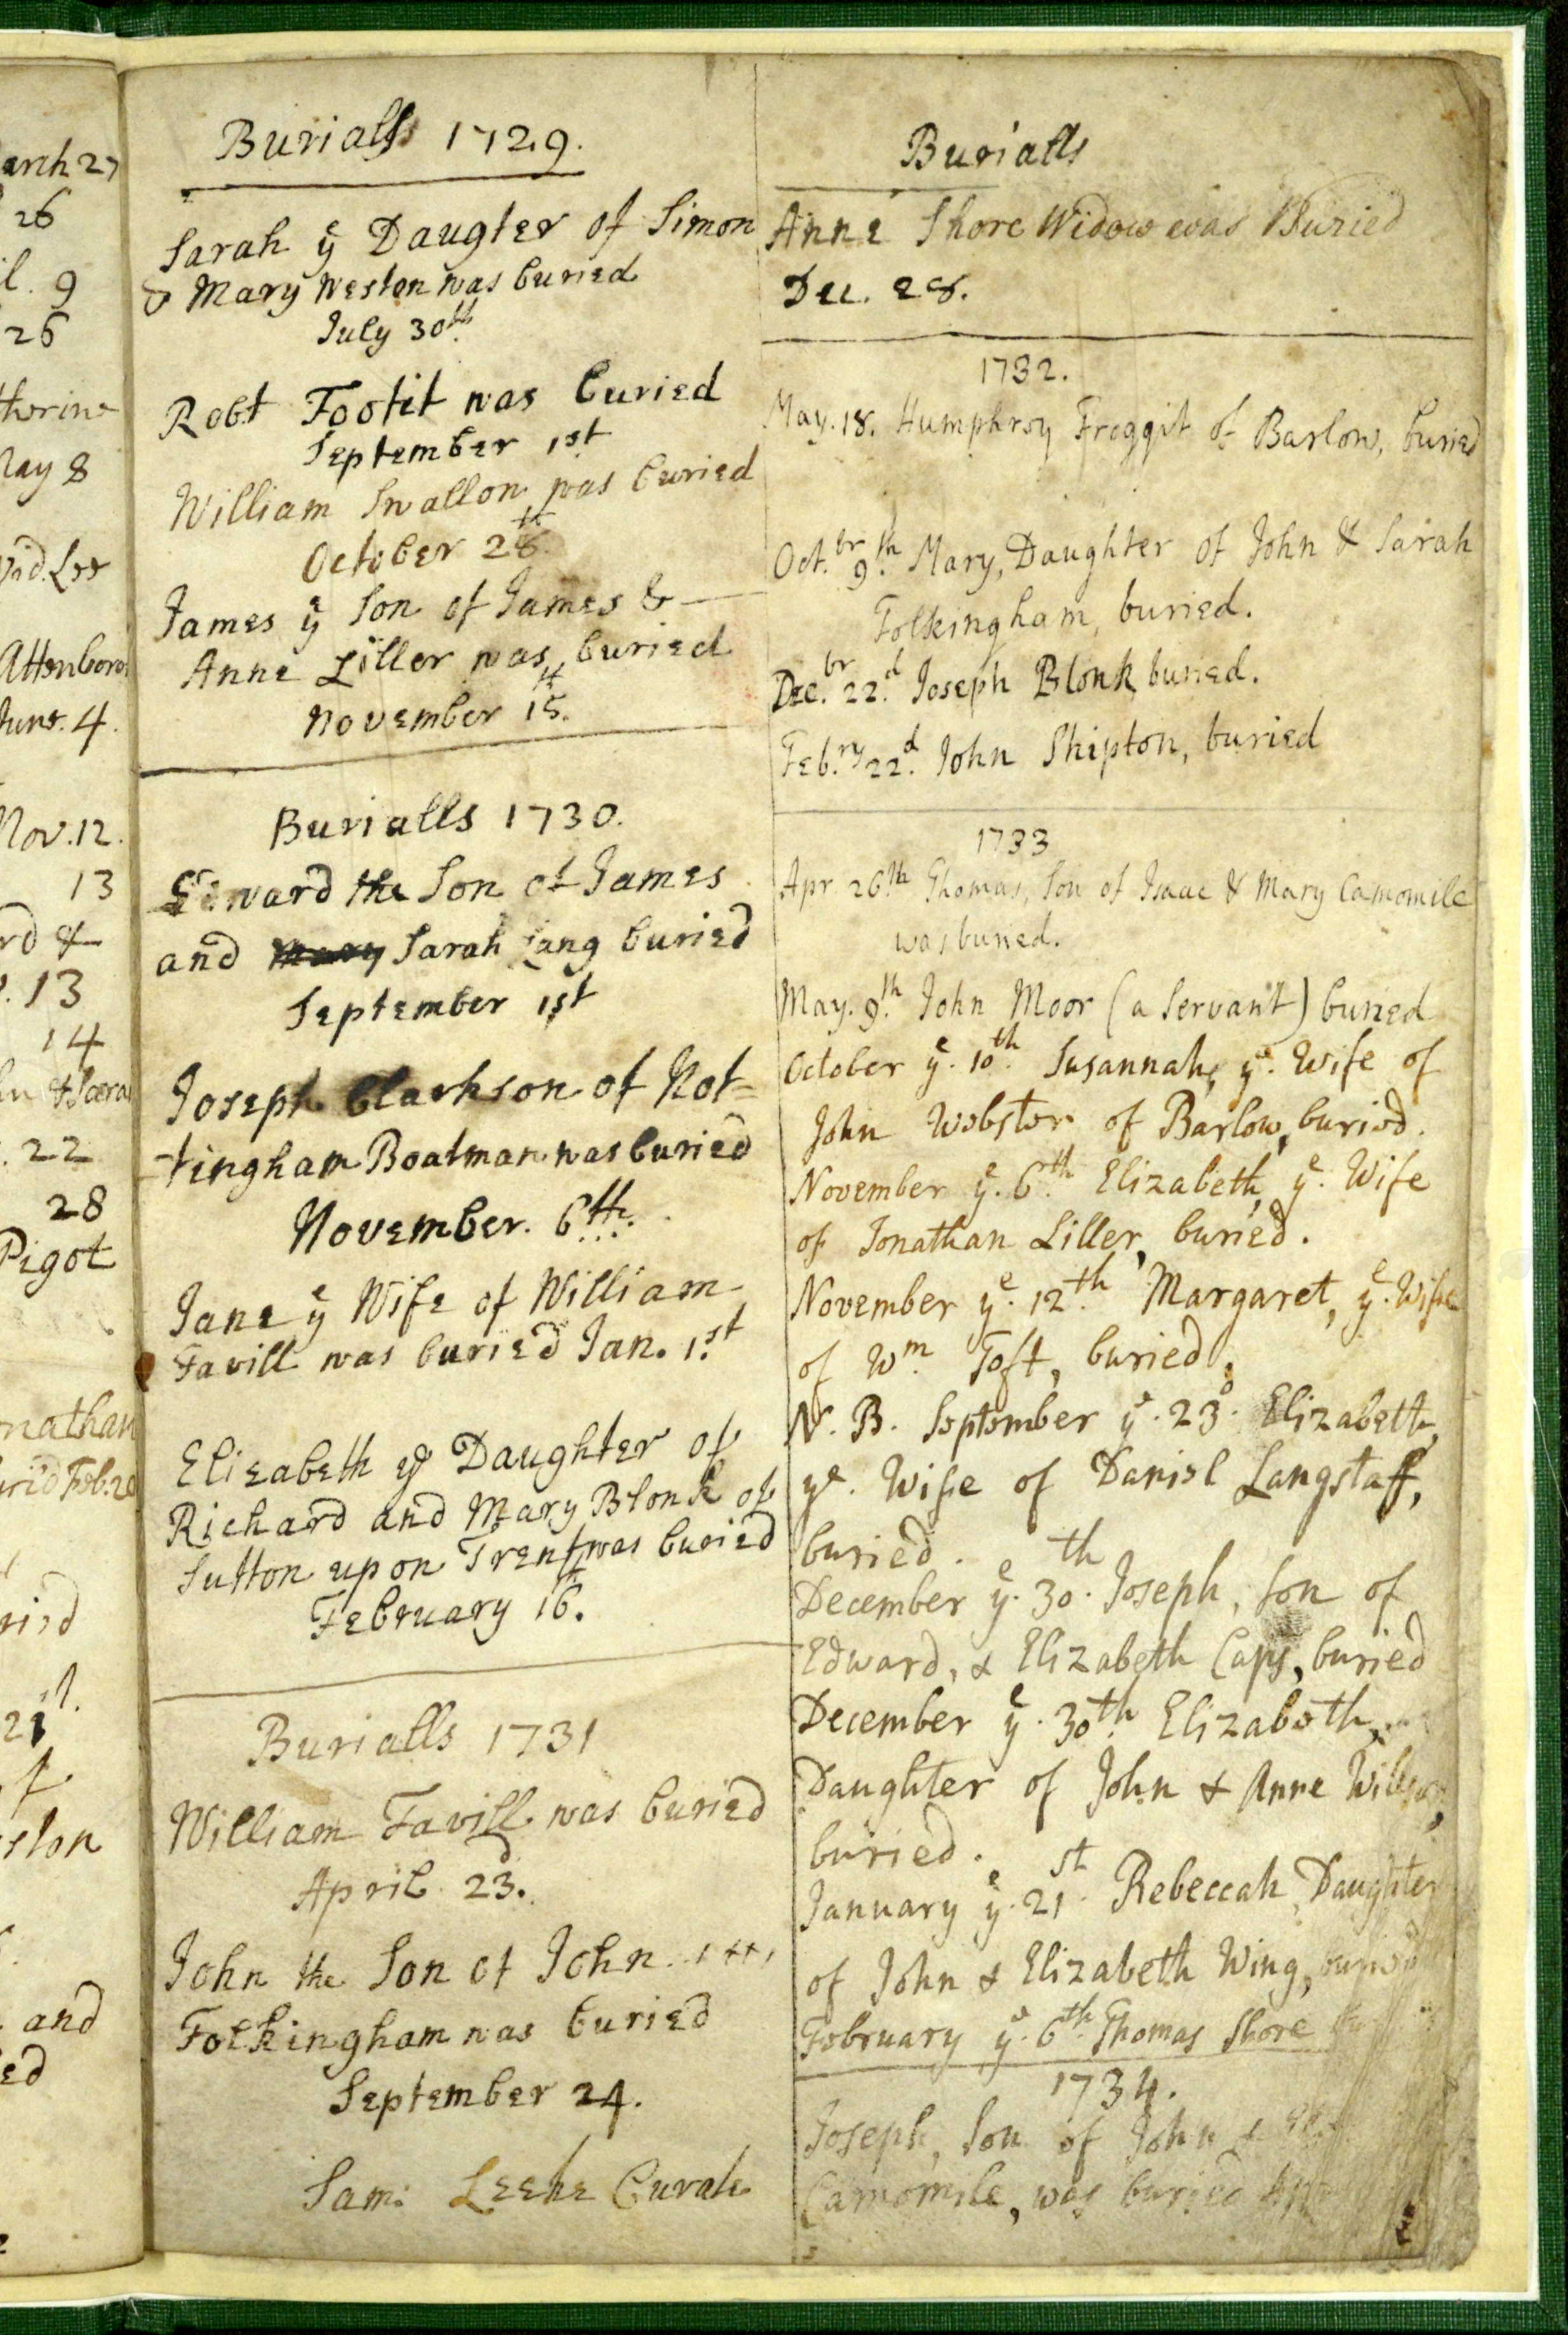 arch 27
26
9
26
therine
May 8
Attenboro
June. 4.
Nov. 12.
13
rd &
13
14
22
28
Pigot
nathan
Feb. 20
21
ston
and
ed
Burialls 1729.
Sarah ye Daugter of Simon
& Mary Weston was buried
July 30th
Robt Footit was buried
September 1st
William Swallow was buried
October 28th
James ye Son of James &
Anne Liller was buried
November 15th.
Burialls 1730.
Edward the Son of James
and Mary Sarah Lang buried
September 1st
Joseph Clarkson of Not=
tingham Boatman was buried
November. 6th.
Jane ye Wife of William
Favill was buried Jan. 1st
Elizabeth ye Daughter of
Richard and Mary Blonk of
Sutton upon Trent was buried
February 16th.
Burialls 1731
William Favill was buried
April 23d.
John the Son of John
Folkingham was buried
September 24.
Sam: Leeke Curate
Burialls
Anne Shore Widow was Buried
Dec. 28.
1732.
May. 18. Humphrey Froggit of Barlow, buried
Oct.br 9th Mary, Daughter of John & Sarah
Folkingham, buried.
Dec.br 22d. Joseph Blonk buried.
Feb.ry 22d. John Shipton, buried
1733
Apr 26th Thomas, Son of Isaac & Mary Camomile
was buried.
May. 9th. John Moor (a Servant) buried
October ye. 10th. Susannah, ye. Wife of
John Webster of Barlow, buried.
November ye. 6th. Elizabeth, ye. Wife
of Jonathan Liller, buried.
November ye. 12th. Margaret, ye. Wife
of Wm. Toft, buried.
N. B. September ye. 23d. Elizabeth,
ye. Wife of Daniel Langstaff,
buried.
December ye. 30th. Joseph, Son of
Edward, & Elizabeth Caps, buried
December ye. 30th. Elizabeth,
Daughter of John & Anne
buried.
January ye. 21st. Rebeccah, Daughter
of John & Elizabeth Wing, buried
February ye. 6th. Thomas Shore
1734.
Joseph, Son of John &
Camomile, was buried